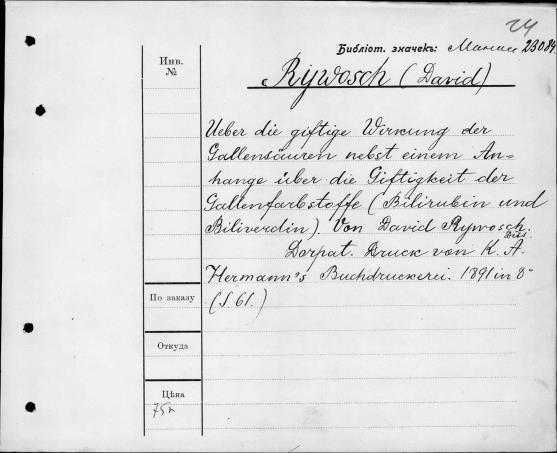 24
Библіот. значекъ: 23084.
Инв.
№
Rywosch (David)
Ueber die giftige Wirkung der
Gallensäuren nebst einem An=
hange über die Giftigkeit der
Gallenfarbstoffe (Bilirubin und
Biliverdin). Von David Rywosch.
Diss.
Dorpat. Druck von K. A.
Hermann's Buchdruckerei. 1891 in 8°
По заказу
(S. 61.)
Откуда
Цѣна
75к